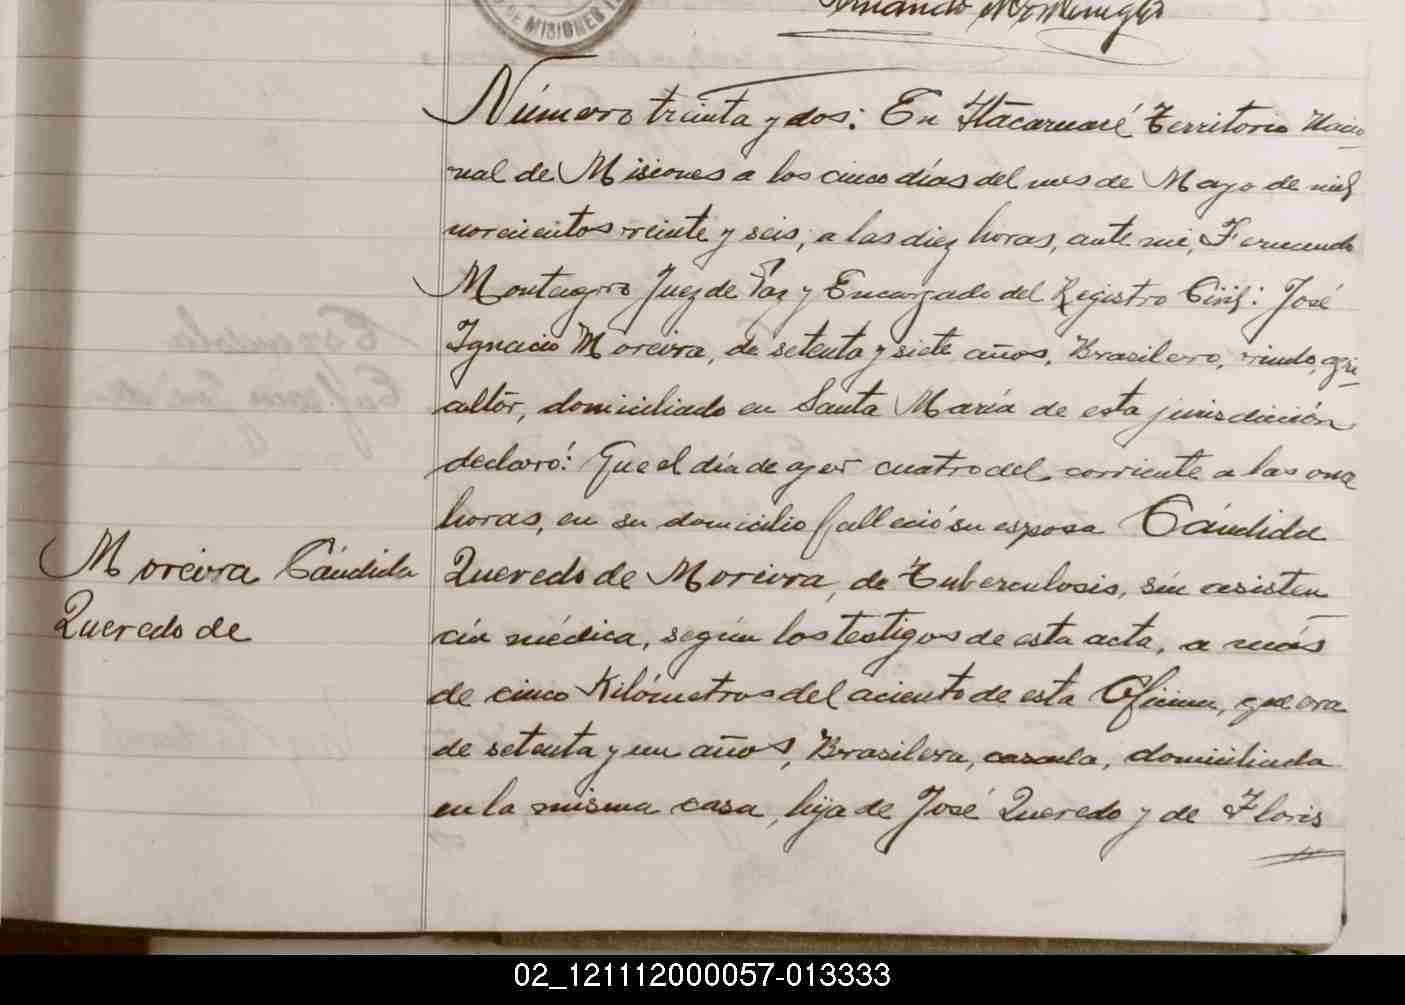 DE MISIONES
Fernando Montenegro
Número treinta y dos: En Itacaruaré Territorio Nacio
nal de Misiones a los cinco días del mes de Mayo de mil
novecientos veinte y seis, a las diez horas, ante mi, Fernando
Montegro Juez de Paz y Encargado del Registro Civil: José
Ignacio Moreira, de setenta y siete años, Brasilero, viudo, agri-
cultor, domiciliado en Santa María de esta jurisdicción
declaró: Que el día de ayer cuatro del corriente a las once
horas, en su domicilio falleció su esposa Cándida
Quevedo de Moreira, de Tuberculosis, sin asisten
cia médica, según los testigos de esta acta, a más
de cinco Kilómetros del aciento de esta Oficina, que era
de setenta y un años, Brasilera, casada, domiciliada
en la misma casa, hija de José Quevedo y de Floris
Moreira Cándida
Quevedo de
02_121112000057-013333